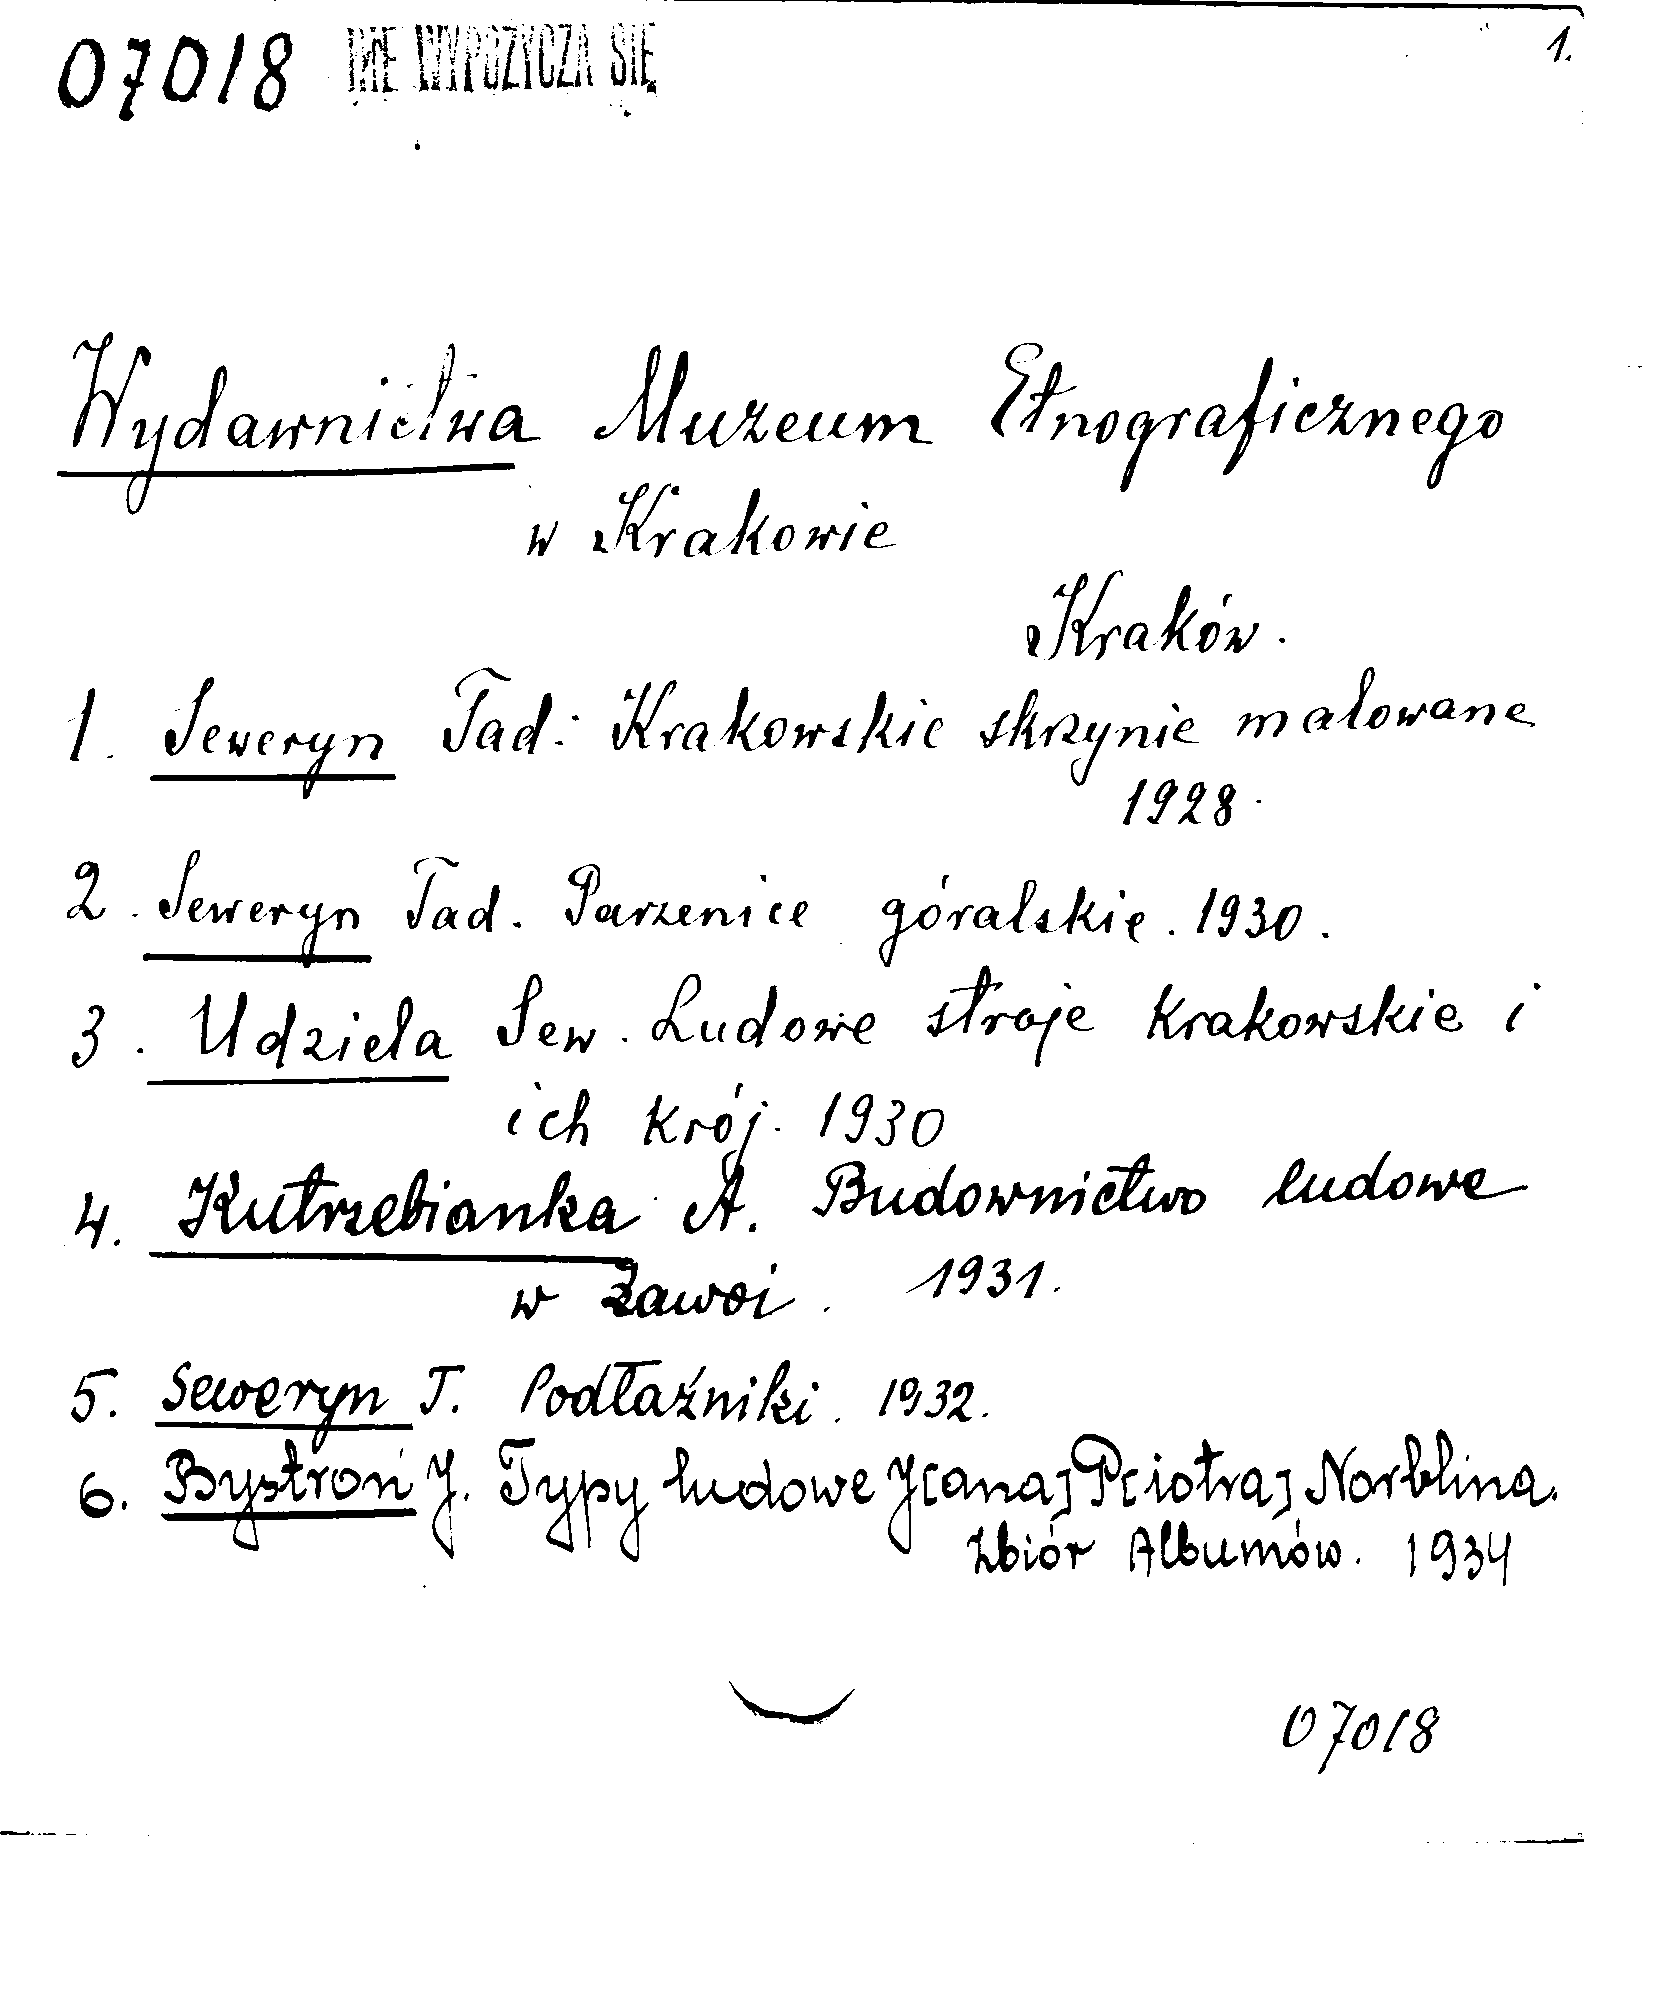 07018 NIE WYPOŻYCZA SIĘ 1.
Wydawnictwa Muzeum Etnograficznego
w Krakowie
Kraków.
1. Seweryn Tad: Krakowskie skrzynie malowane
1928.
2. Seweryn Tad. Parzenice góralskie. 1930.
3. Udziela Sew. Ludowe stroje krakowskie i
ich krój. 1930
4. Kutrzebianka A. Budownictwo ludowe
w Zawoi. 1931.
5. Seweryn T. Podłaźniki. 1932.
6. Bystroń J. Typy ludowe J[ana] P[iotra] Norblina.
Zbiór Albumów. 1934
07018